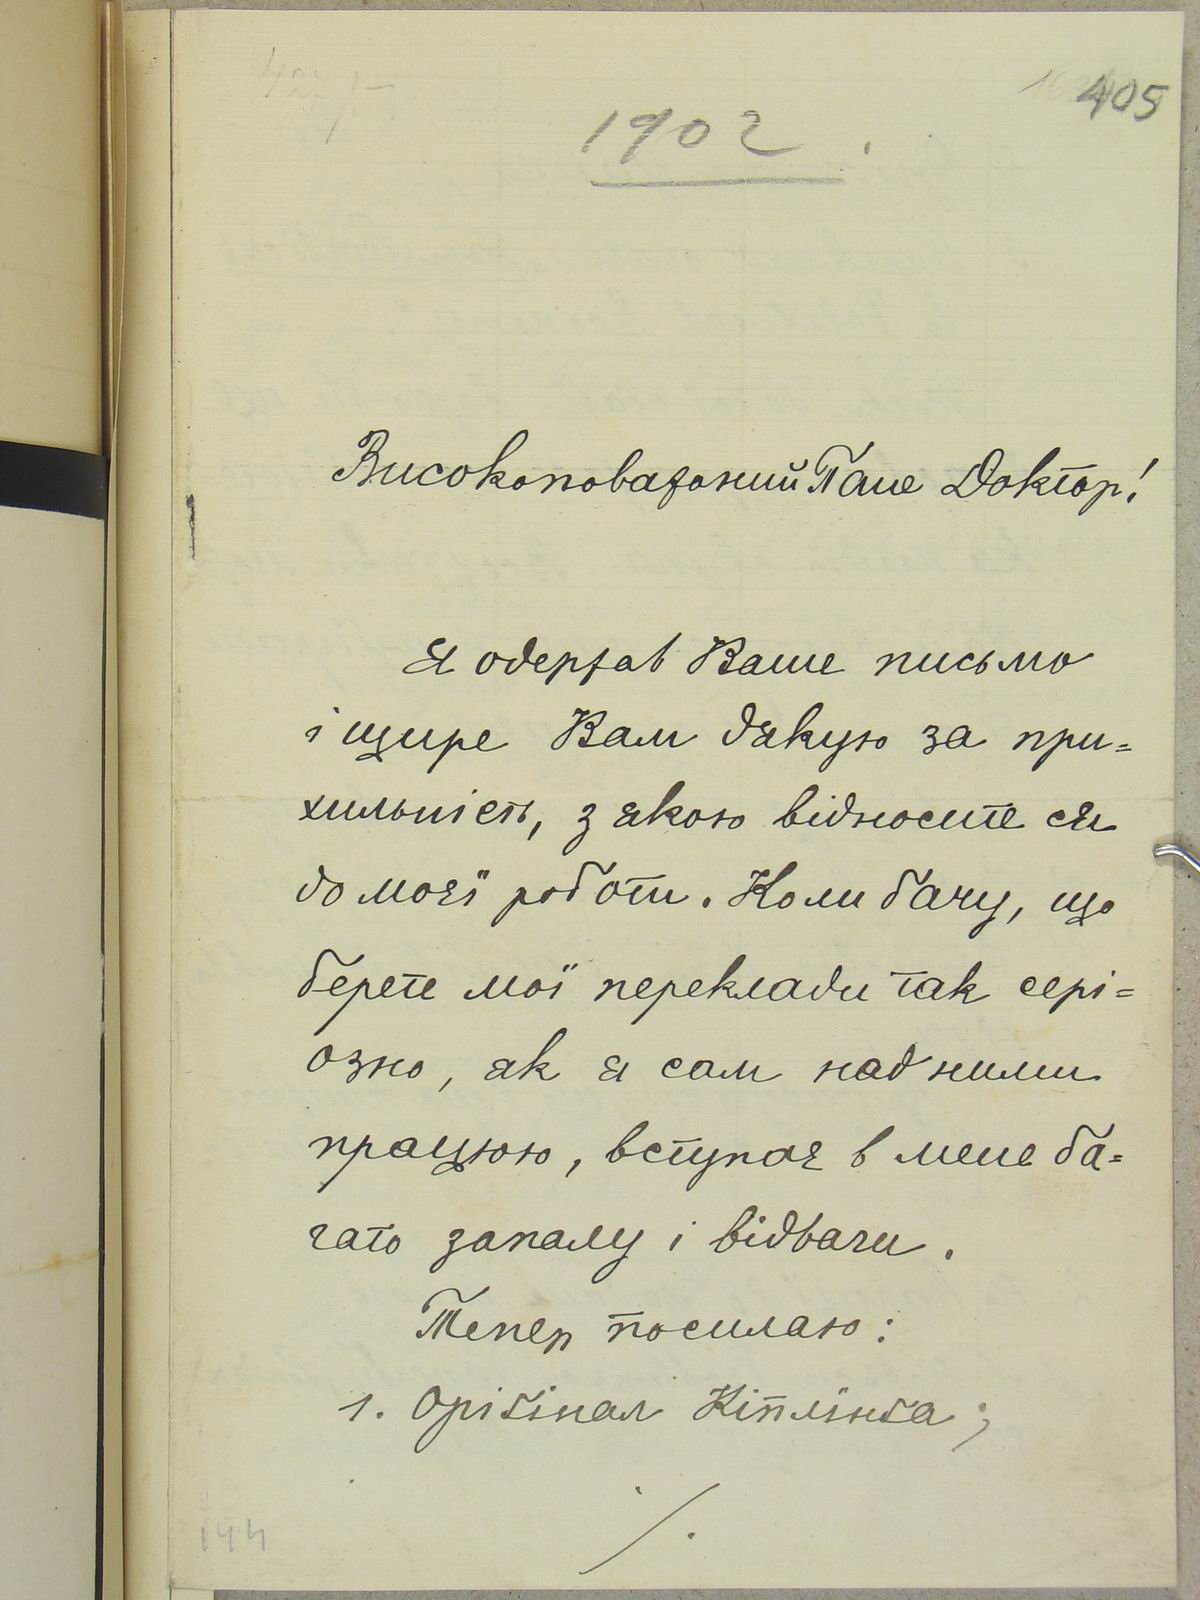 405
1902.
Високоповажний Пане Доктор!
Я одержав Ваше письмо
і щире Вам дякую за при=
хильність, з якою відносите ся
до моєї роботи. Коли бачу, що
берете мої переклади так сері=
озно, як я сам над ними
працюю, вступає в мене ба=
гато запалу і відваги.
Тепер посилаю:
1. Оріґінал Кіплінґа;
./.
144